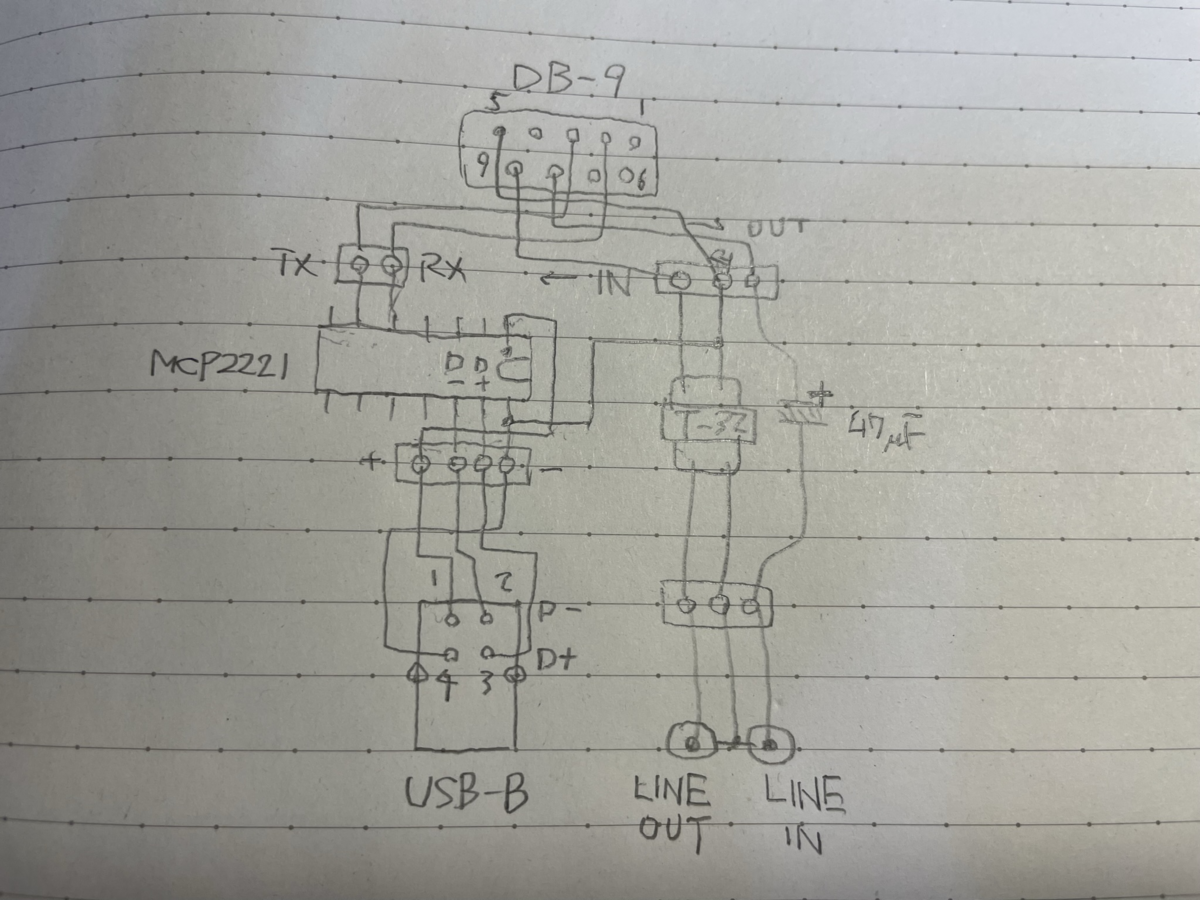 DB-9
5 1
9 6
OUT
TX RX ← IN
MCP2221
D D
- +
T-32
+
47μF
+ -
1 2
D-
D+
4 3
USB-B
LINE LINE
OUT IN